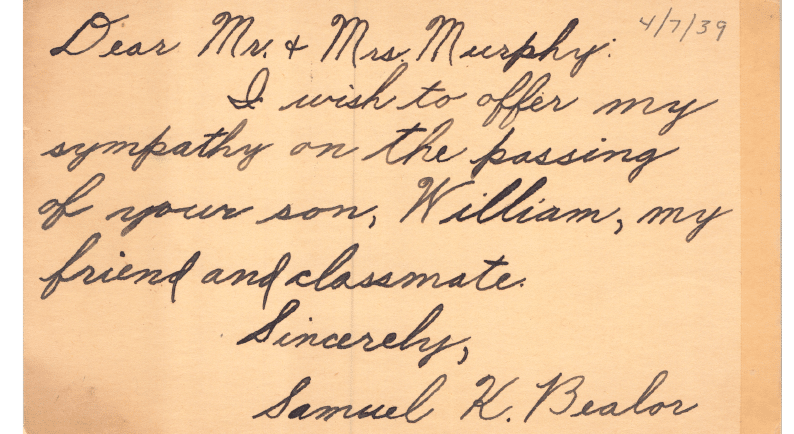 4/7/39
Dear Mr. & Mrs. Murphy:
I wish to offer my
sympathy on the passing
of your son, William, my
friend and classmate.
Sincerely,
Samuel K. Bealor